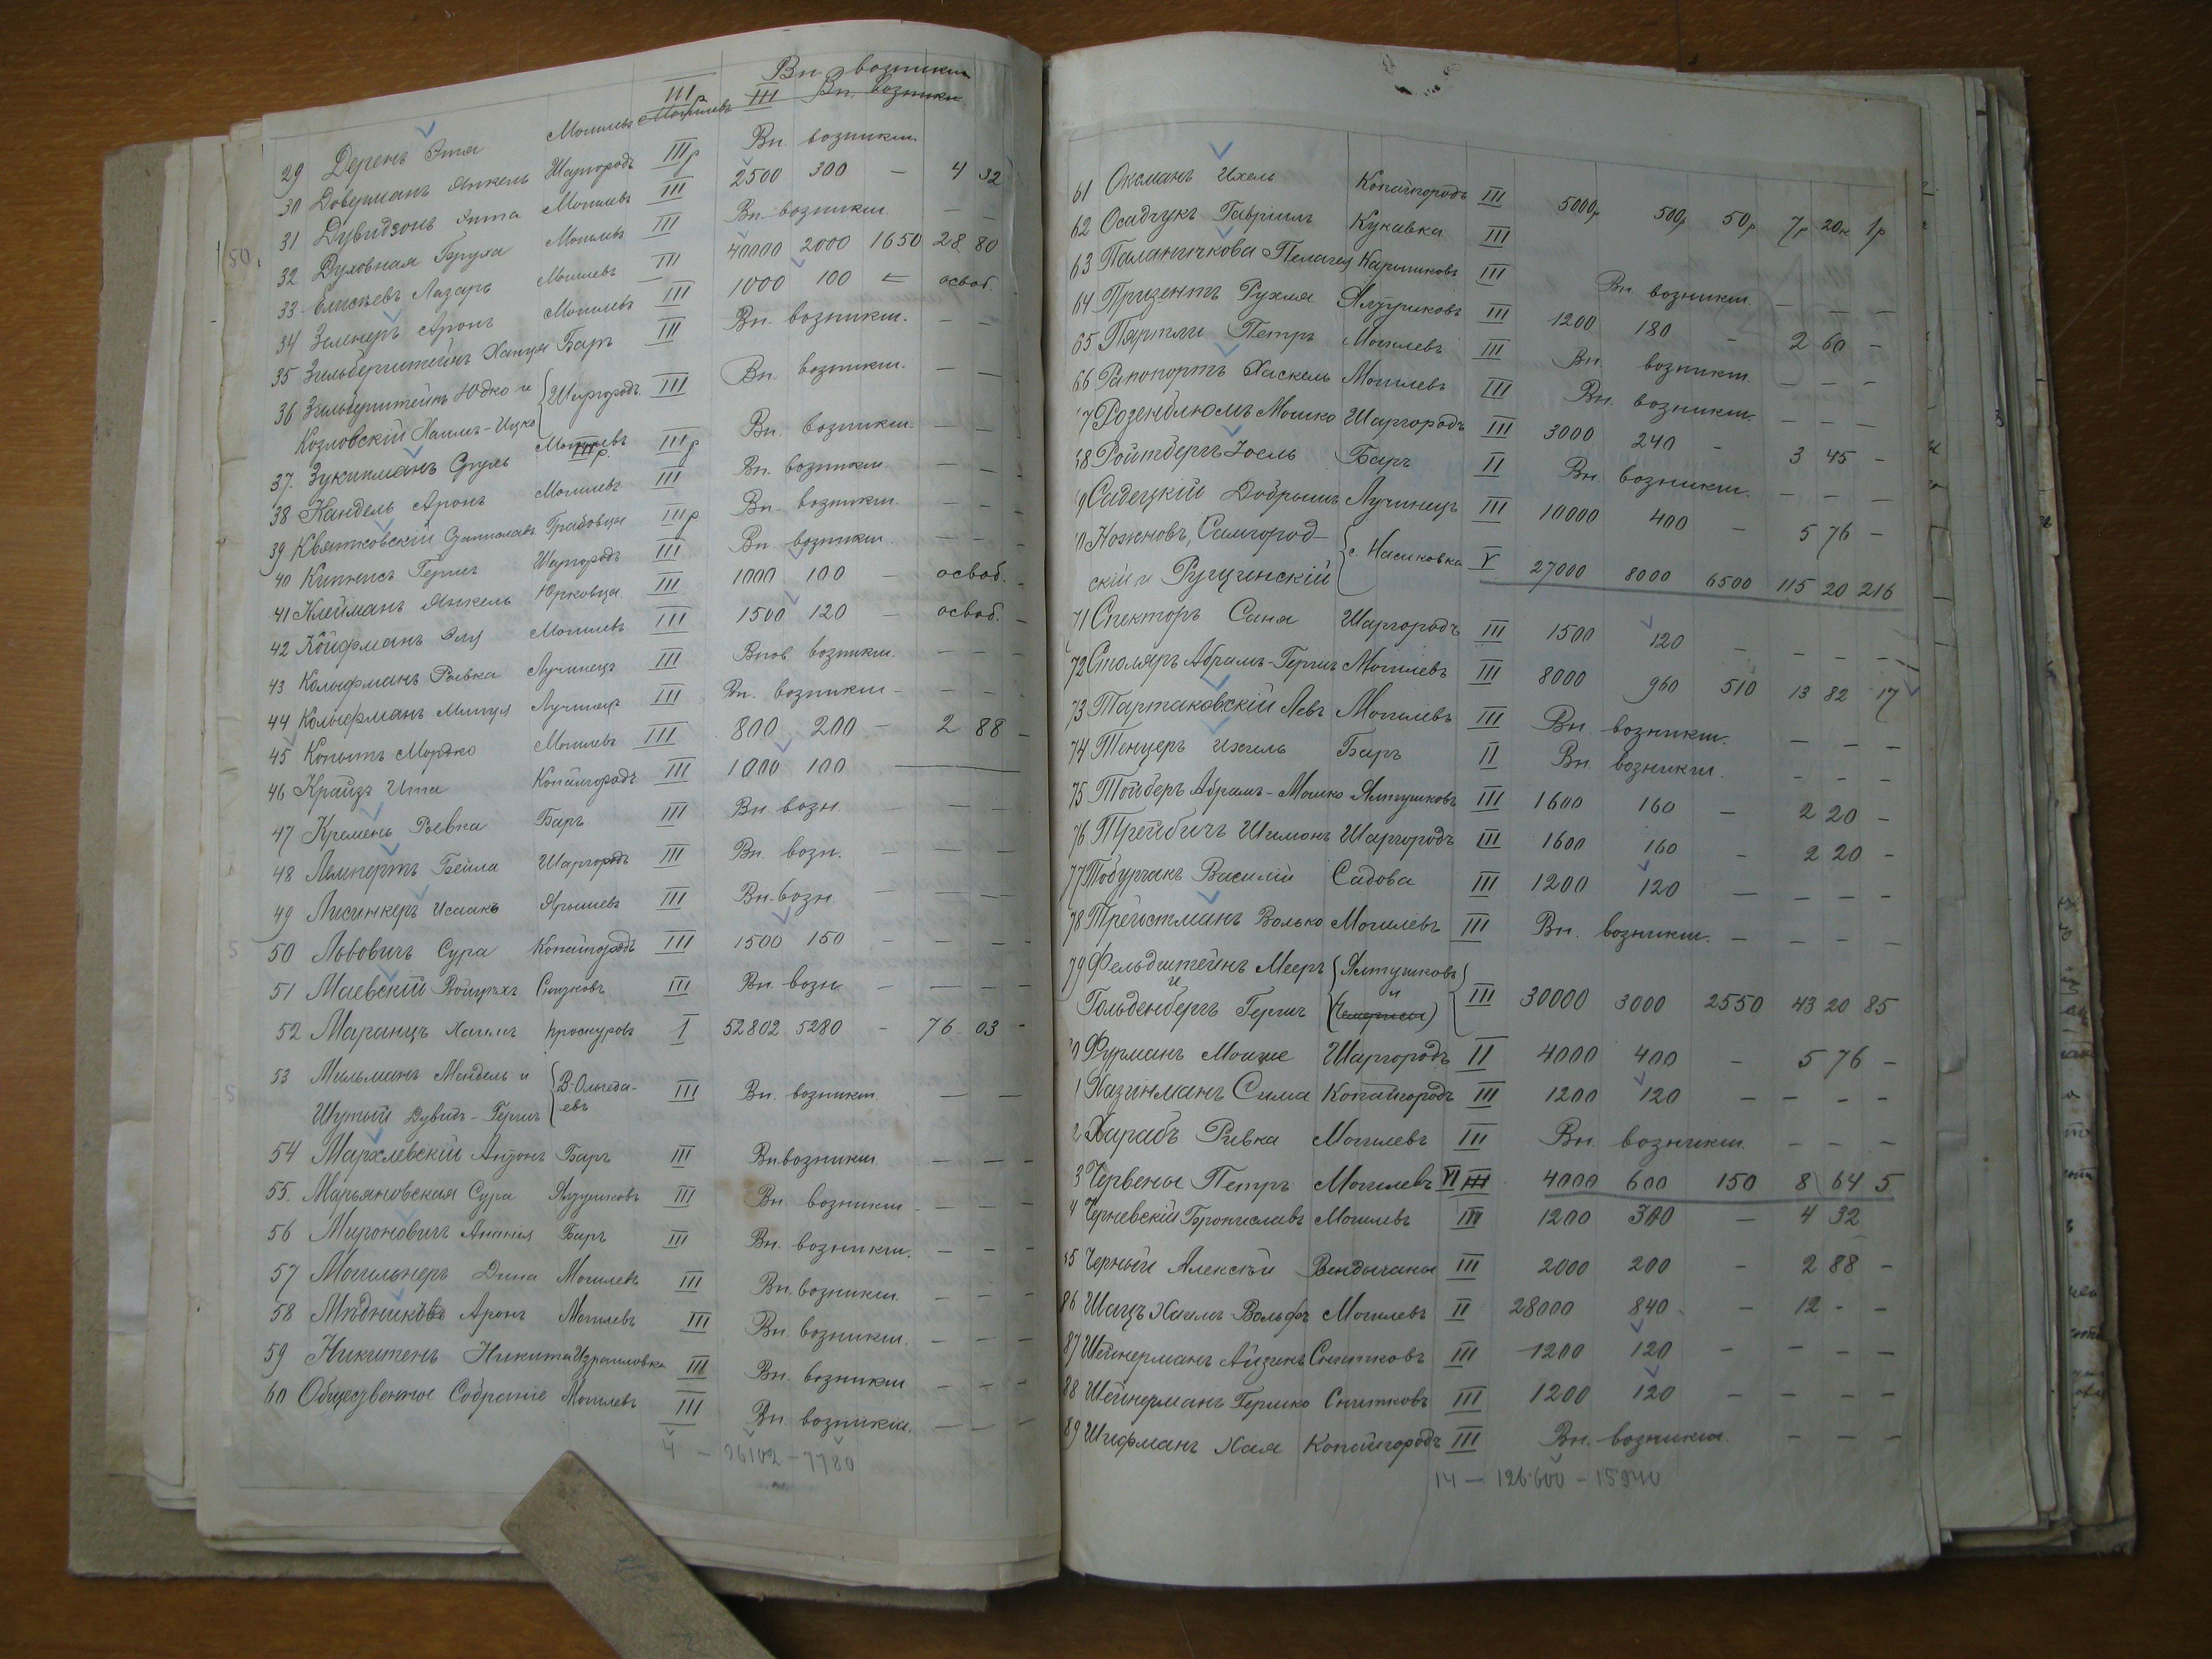 Вн. возникш.
29 Деренъ Эта Могилевъ Могилевъ III Вн. возникш.
30 Доверманъ Янкель Шаргородъ IIIр Вн. возникш.
31 Дувидзонъ Энта Могилевъ III 2500 300 — 4 32
32 Духовная Бруха Могилевъ III Вн. возникш. — —
33 Елисѣевъ Лазарь Могилевъ III 40000 2000 1650 28 80
34 Зеленеръ Аронъ Могилевъ III 1000 100 — освоб.
35 Зильберштейнъ Ханця Баръ III Вн. возникш. — —
36 Зильберштейнъ Юдко и Козловскій Хаимъ-Ицко Шаргородъ III Вн. возникш. — —
37. Зукинманъ Сруль Могилевъ IIIр Вн. возникш. — —
38 Кандель Аронъ Могилевъ III Вн. возникш. — —
39 Квятковскій Станиславъ Грабовцы IIIр Вн. возникш. — —
40 Кипнисъ Гершъ Шаргородъ III Вн. возникш. — — —
41 Клейманъ Янкель Юрковцы III 1000 100 — освоб. —
42 Койфманъ Эля Могилевъ III 1500 120 — освоб. —
43 Кольфманъ Ривка Лучинецъ III Внов возникш. — — —
44 Кольфманъ Минця Лучинецъ III Вн. возникш — — —
45 Копытъ Мордко Могилевъ III 800 200 — 2 88 —
46 Крайзъ Ита Копайгородъ III 1000 100 —
47 Кремень Ривка Баръ III Вн. возн. — — —
48 Лемпертъ Бейла Шаргородъ III Вн. возн. — — —
49 Лисинкеръ Исаакъ Ярышевъ III Вн. возн. — — —
50 Львовичъ Сура Копайгородъ III 1500 150 — — — —
51 Маевскій Войцехъ Снизковъ III Вн. возн — — — —
52 Маранцъ Хаимъ Проскуровъ I 52802 5280 — 76 03 —
53 Мильманъ Мендель и В.-Ольчеда-
Шутый Дувидъ-Гершъ евъ III Вн. возникш. — —
54 Мархлевскій Антонъ Баръ III Вн возникш. — — —
55. Марьяновская Сура Ялтушковъ III Вн. возникш — — —
56 Мироновичъ Ананія Баръ III Вн. возникш. — — —
57 Могильнеръ Дина Могилевъ III Вн. возникш. — — —
58 Мѣдниковъ Аронъ Могилевъ III Вн. возникш. — — —
59 Никитенъ Никита Израиловка III Вн. возникш — — —
60 Общественное Собраніе Могилевъ III Вн. возникш. — — —
4 — 96102 — 7780
61 Оксманъ Ихель Копайгородъ III 5000р 500р 50р 7р 20к 1р
62 Осадчукъ Гавріилъ Кукавка III
63 Паланичкова Пелагея Карышковъ III Вн. возникш. — — —
64 Призентъ Рухля Ялтушковъ III 1200 180 — 2 60 —
65 Партги Петръ Могилевъ III Вн. возникш. — — —
66 Рапопортъ Хаскель Могилевъ III Вн. возникш. — — —
67 Розенблюмъ Мошко Шаргородъ III 3000 240 — 3 45 —
68 Ройтбергъ Іосль Баръ II Вн. возникш. — — —
69 Садецкій Добрышъ Лучинецъ III 10000 400 — 5 76 —
70 Ножновъ, Самгород-
скій и Рущинскій с. Насиковка V 27000 8000 6500 115 20 216
71 Спекторъ Саня Шаргородъ III 1500 120 — — — —
72 Столяръ Абрамъ-Гершъ Могилевъ III 8000 960 510 13 82 17
73 Тартаковскій Левъ Могилевъ III Вн. возникш. — — —
74 Тенцеръ Ихиль Баръ II Вн. возникш. — — —
75 Тойберъ Абрамъ-Мошко Ялтушковъ III 1600 160 — 2 20 —
76 Трейбичъ Шимонъ Шаргородъ III 1600 160 — 2 20 —
77 Тобурчакъ Василій Садова III 1200 120 — — — —
78 Трейстманъ Волько Могилевъ III Вн. возникш. — — — —
79 Фельдштейнъ Мееръ Ялтушковъ
и и
Гольденбергъ Гершъ (Чемерисы) III 30000 3000 2550 43 20 85
Фурманъ Мошке Шаргородъ II 4000 400 — 5 76 —
1 Хазинманъ Сима Копайгородъ III 1200 120 — — — —
2 Харабъ Ривка Могилевъ III Вн. возникш. — — —
3 Червены Петръ Могилевъ VI III 4000 600 150 8 64 5
4 Черневскій Брониславъ Могилевъ III 1200 300 — 4 32
85 Черный Алексѣй Вендычаны III 2000 200 — 2 88 —
86 Шацъ Хаимъ-Вольфъ Могилевъ II 28000 840 — 12 - —
87 Шейнерманъ Айзикъ Снитковъ III 1200 120 — — — —
88 Шейнерманъ Гершко Снитковъ III 1200 120 — — — —
89 Шифманъ Хая Копайгородъ III Вн. возникш. — — —
14 — 126.600 — 15840